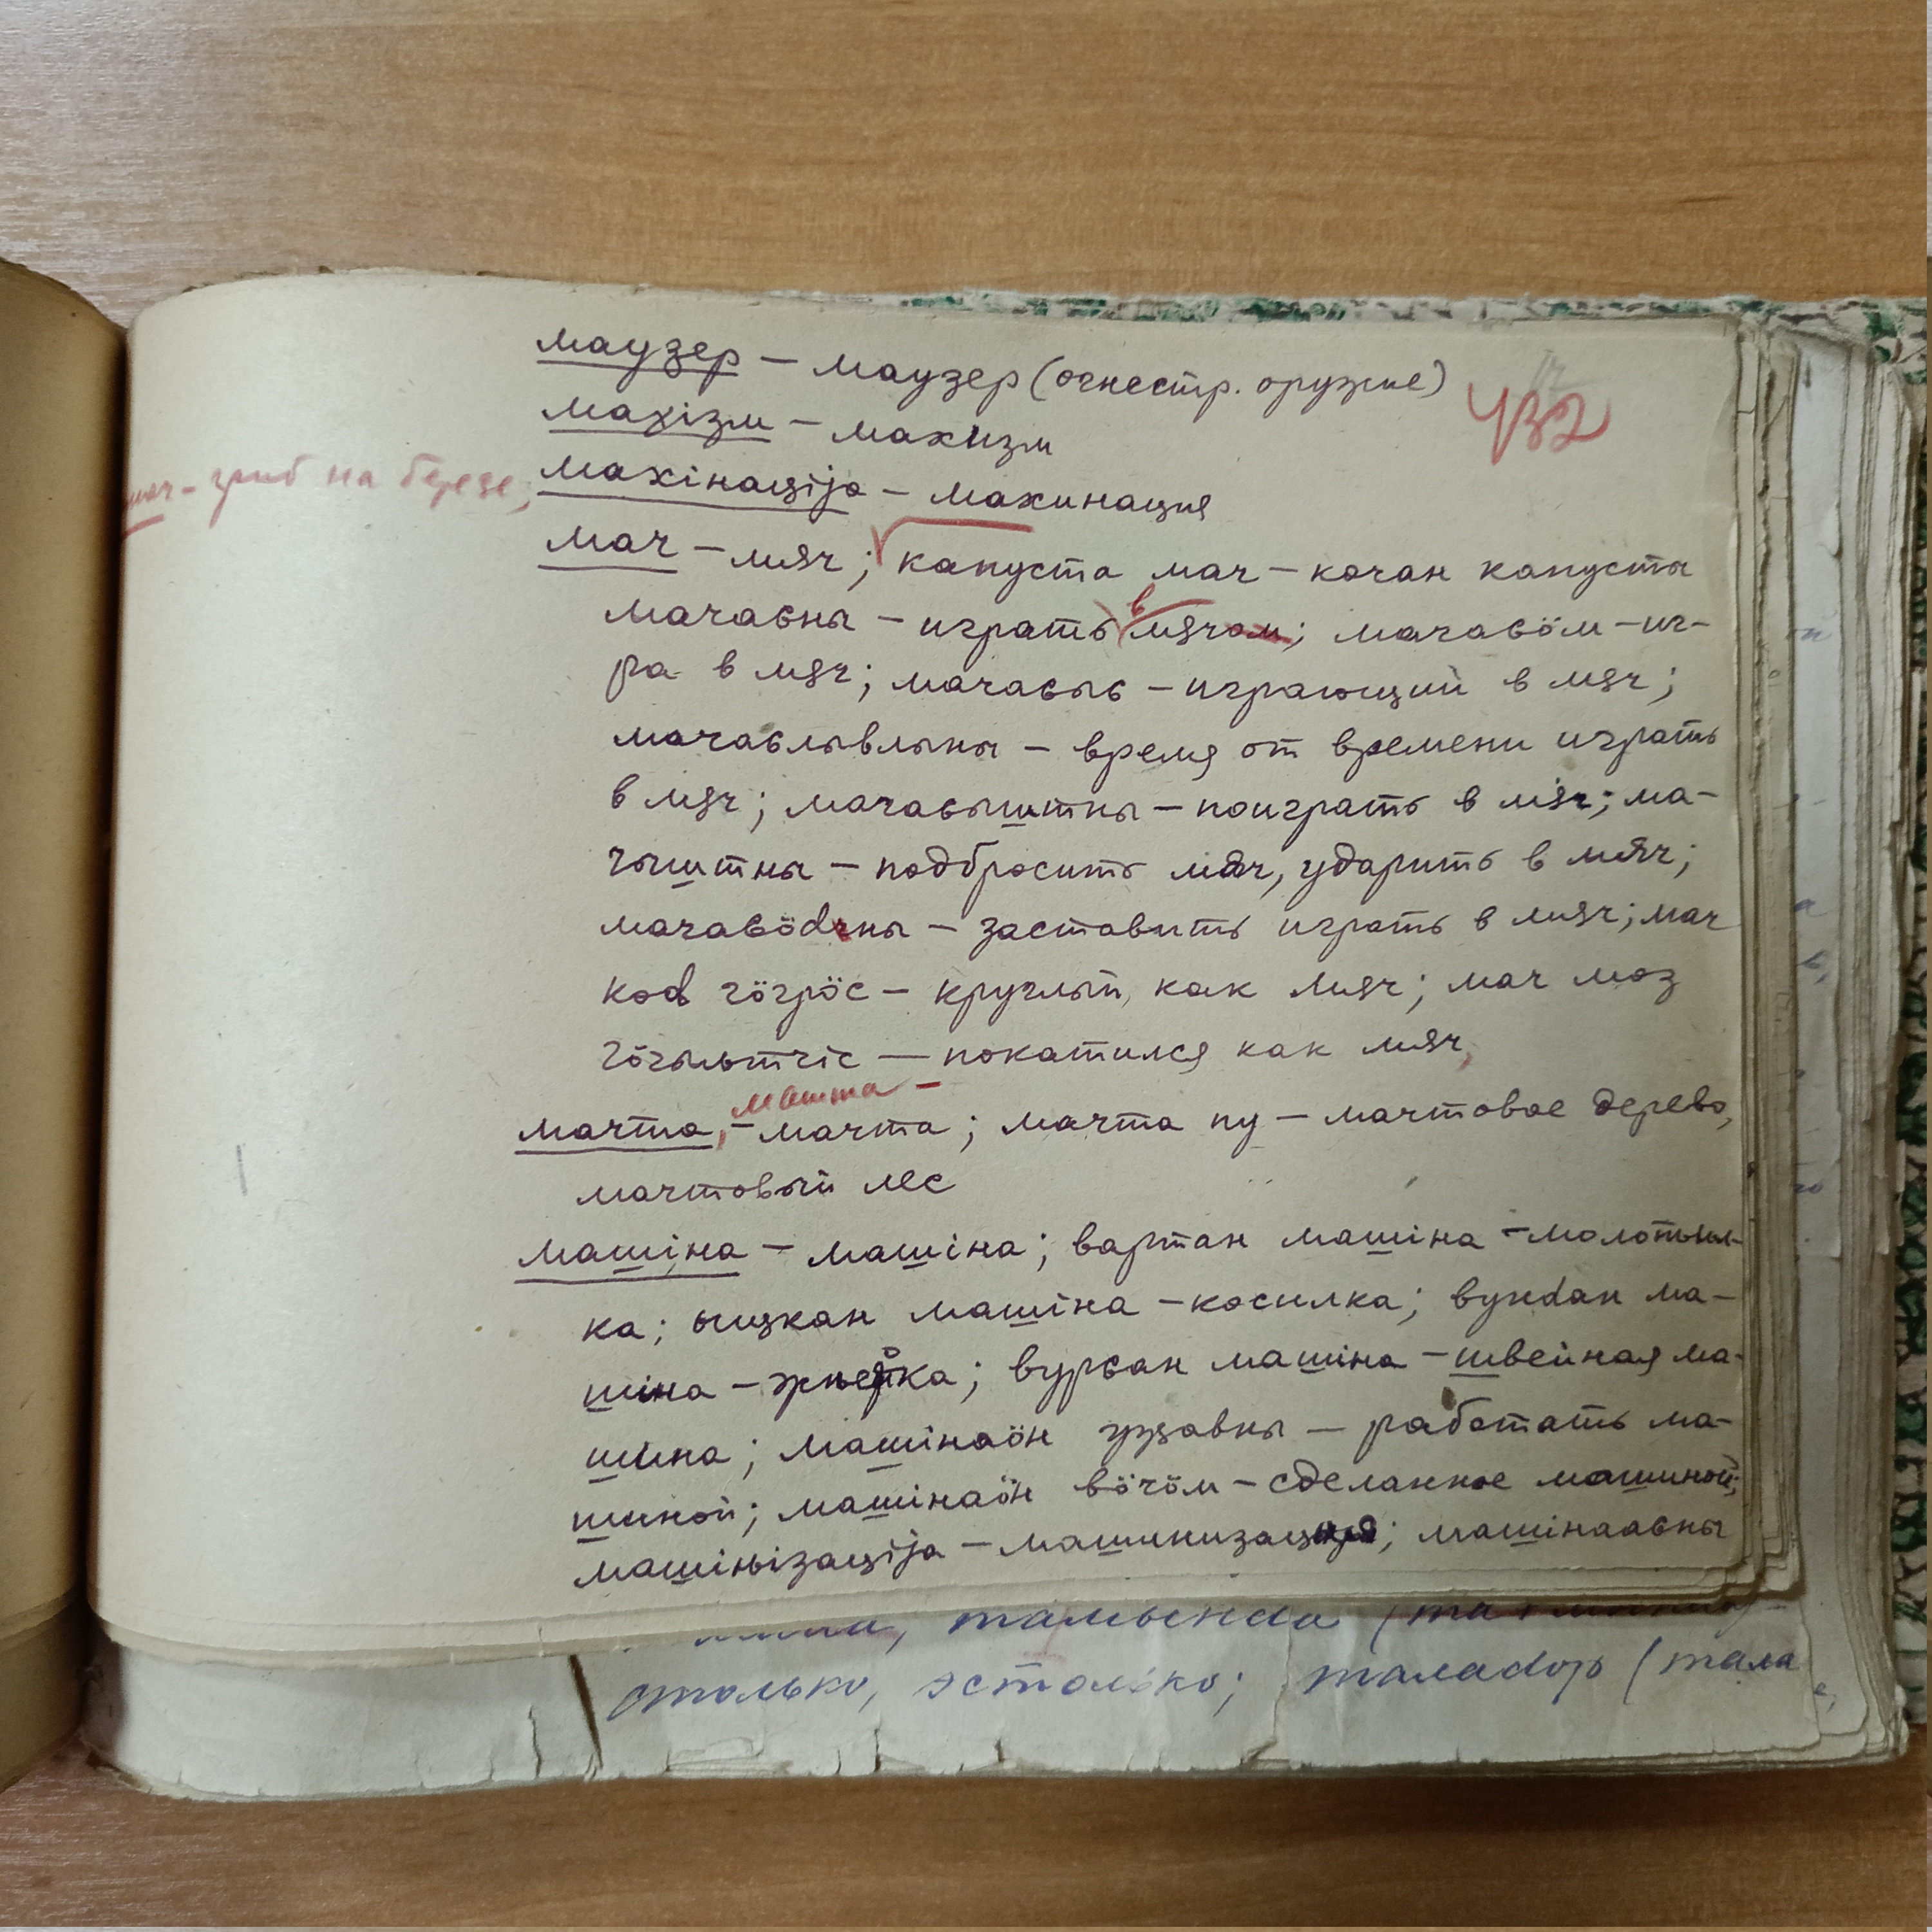 маузер – маузер (огнестр. оружие)
432
махізм – махизм
мач – гриб на березе;
махінаціја – махинация
мач – мяч; капуста мач – кочан капусты
мачаԍны – играть в мячом; мачаԍӧм – иг-
ра в мяч; мачаԍыԍ – играющий в мяч;
мачаԍлывлыны – время от времени играть
в мяч; мачаԍыштны – поиграть в мяч; ма-
чыштны – подбросить мяч, ударить в мяч;
мачаԍӧԁны – заставить играть в мяч; мач
коԁ гӧгрӧс – круглый, как мяч; мач моз
гӧгыльтчіс – покатился как мяч,
машта –
мачта, – мачта; мачта пу – мачтовое дерево,
мачтовый лес
машіна – машіна; вартан машіна – молотил-
ка; ыцкан машіна – косилка; вунԁан ма-
шіна – жнейка; вурԍан машіна – швейная ма-
шина; машінаӧн уҗавны – работать ма-
шиной; машінаӧн вӧчӧм – сделанное машиной;
машіԋізаціја – машинизация; машінааԍны
столько, эстолько; талаԁор (тала